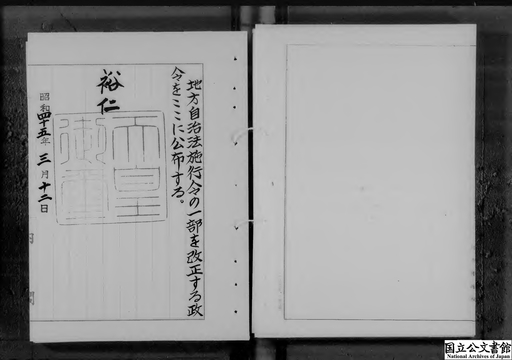 地方自治法施行令の一部を改正する政
令をここに公布する。
裕仁
天皇御璽
昭和四十五年三月十二日
国立公文書館
National Archives of Japan